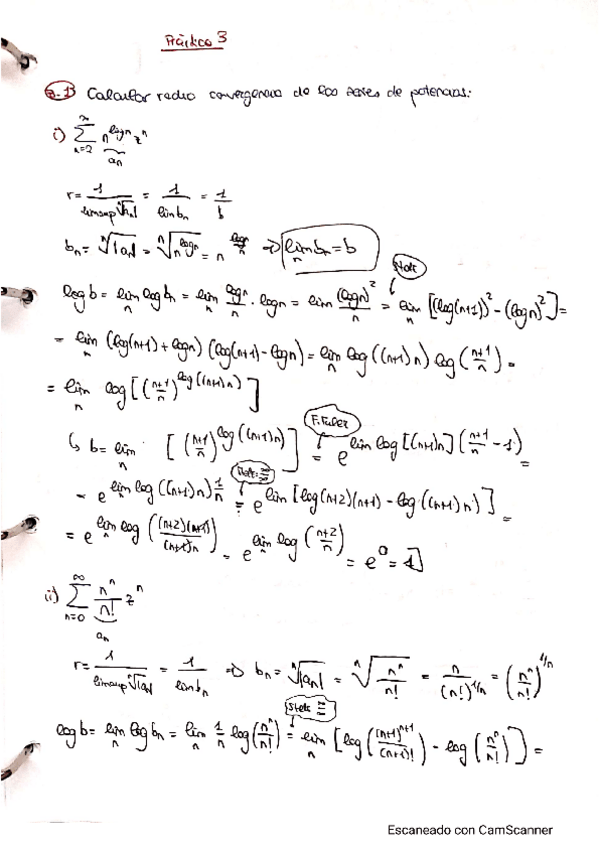 Práctico 3
3.1 Calcular radio convergencia de las series de potencias:
i) ∑_{n=2}^{∞} n^{log n} z^n
a_n
r = 1/(limsup ⁿ√|a_n|) = 1/(lim b_n) = 1/b
b_n = ⁿ√|a_n| = ⁿ√(n^{log n}) = n^{(log n)/n} ⇒ lim_n b_n = b
Stolz
log b = lim_n log b_n = lim_n (log n)/n · log n = lim (log n)²/n = lim_n [(log(n+1))² - (log n)²] =
= lim_n (log(n+1) + log n) (log(n+1) - log n) = lim_n log((n+1)n) log((n+1)/n) =
= lim_n log[((n+1)/n)^{log((n+1)n)}]
F. Euler
↳ b = lim_n [((n+1)/n)^{log((n+1)n)}] = e^{lim log[(n+1)n]((n+1)/n - 1)} =
Stolz ∞/∞
= e^{lim_n log((n+1)n) 1/n} = e^{lim [log(n+2)(n+1) - log((n+1)n)]} =
= e^{lim_n log((n+2)(n+1)/((n+1)n))} = e^{lim_n log((n+2)/n)} = e^0 = 1]
ii) ∑_{n=0}^{∞} n^n/n! z^n
a_n
r = 1/(limsup ⁿ√|a_n|) = 1/(lim b_n) ⇒ b_n = ⁿ√|a_n| = ⁿ√(n^n/n!) = n/(n!)^{1/n} = (n^n/n!)^{1/n}
Stolz ∞/∞
log b = lim_n log b_n = lim_n 1/n log(n^n/n!) = lim_n [log((n+1)^{n+1}/(n+1)!) - log(n^n/n!)] =
Escaneado con CamScanner